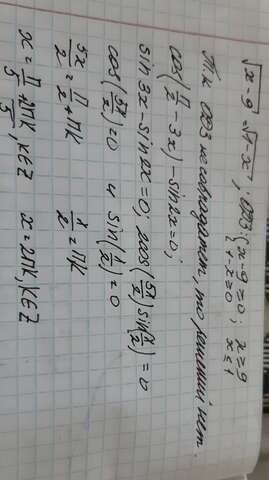 √x-9 = √1-x ; ОДЗ: { x-9≥0 ; x≥9
1-x≥0 x≤1
Т.к ОДЗ не совпадает, то решений нет.
cos(π/2 - 3x) - sin2x = 0;
sin3x - sin2x = 0; 2cos(5x/2) sin(x/2) = 0
cos(5x/2) = 0 и sin(x/2) = 0
5x/2 = π/2 + πk x/2 = πk
x = π/5 + 2πk/5, k∈Z x = 2πk, k∈Z